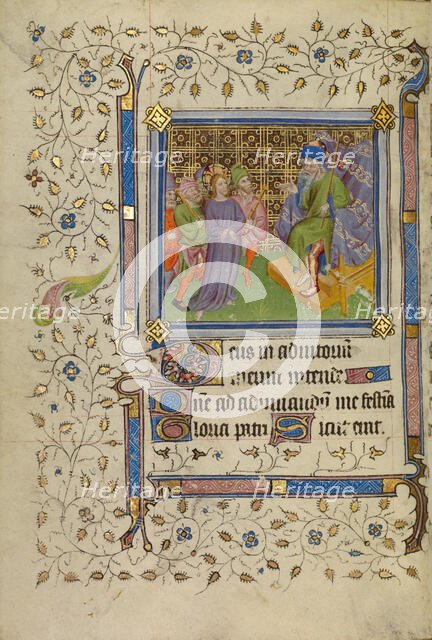 Heritage Heritage
Heritage
Deus in adiutoriū
meum intende
Dne ad adiuuandū me festīa
Gloria patri Sicut erat.
Heritage Heritage